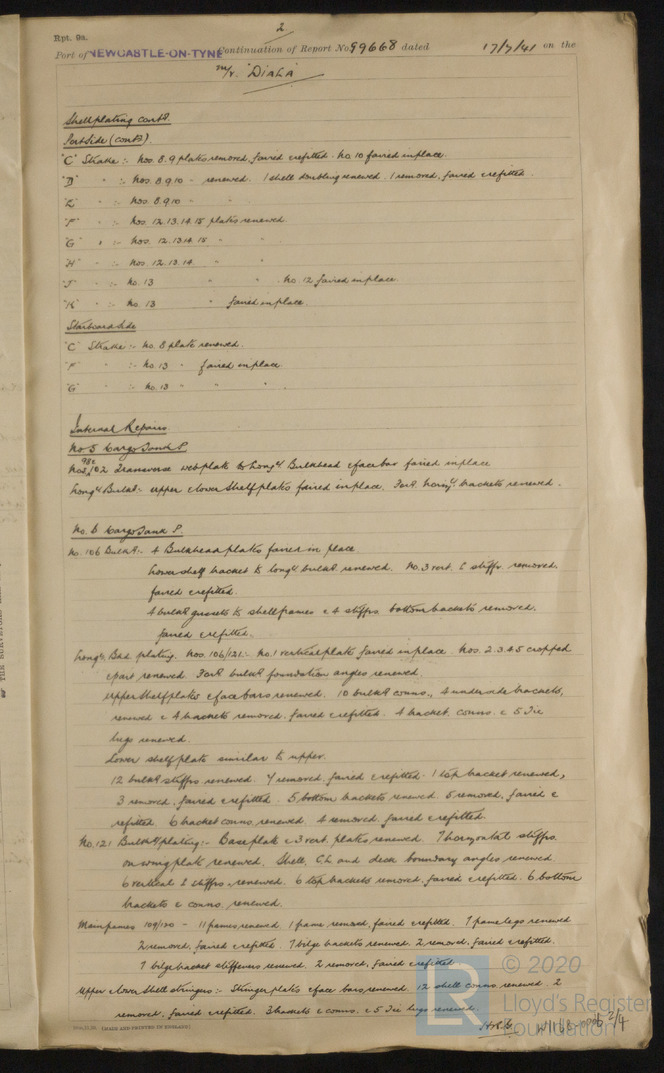 2
Rpt. 9a.
Port of NEWCASTLE-ON-TYNE Continuation of Report No. 99668 dated 17/7/41 on the
m/v. "DIALA"
Shellplating contd.
Port Side (contd).
"C" Strake :- Nos. 8.9 plates removed, faired & refitted. No 10 faired in place.
"D" " :- Nos. 8.9.10 - renewed. 1 shell doubling renewed. 1 removed, faired & refitted.
"E" " :- Nos. 8.9.10 " "
"F" " :- Nos. 12.13.14.15 plates renewed
"G" " :- Nos. 12.13.14.15 " "
"H" " :- Nos. 12.13.14. " "
"J" " :- No. 13 " " No. 12 faired in place.
"K" " :- No. 13 " faired in place.
Starboard Side
"C" Strake :- No. 8 plate renewed.
"F" " :- No. 13 " faired in place
"G" " :- No. 13 " " "
Internal Repairs
No 5 Cargo Tank P.
Nos. 98 & 102 Transverse webplate to Longl Bulkhead & facebar faired in place
Longl Bulkd:- upper & lower Shelfplates faired in place. Four horizl. brackets renewed.
No. 6 Cargo Tank P.
No. 106 Bulkd:- 4 Bulkhead plates faired in place.
Lower shelf bracket to longl bulkd renewed. No. 3 vert. stiffr. removed,
faired & refitted.
4 bulkd gussets to shell frames & 4 stiffrs. bottom brackets removed.
faired & refitted.
Longl. Bhd plating. Nos. 106/121:- No. 1 vertical plate faired in place. Nos. 2.3.4.5 cropped
& part renewed. Four bulkd foundation angles renewed.
Upper shelfplates & facebars renewed. 10 bulkd conns., 4 underside brackets,
renewed & 4 brackets removed. Faired & refitted. 4 bracket. conns. & 5 Tie
lugs renewed.
Lower shelf plate similar to upper.
12 bulkd stiffrs renewed. 7 removed, faired & refitted. 1 top bracket renewed,
3 removed, faired & refitted. 5 bottom brackets renewed. 5 removed, faired &
refitted. 6 bracket conns. renewed. 4 removed. faired & refitted.
No. 121 Bulkd plating:- Base plate & 3 vert. plates renewed. 7 horizontal stiffrs.
on wing plate renewed. Shell, CL and deck boundary angles renewed.
6 vertical stiffrs. renewed. 6 top brackets removed, faired & refitted. 6 bottom
brackets & conns. renewed.
Main frames 109/120 - 11 frames renewed. 1 frame removed, faired & refitted. 7 frame legs renewed
2 removed, faired & refitted. 7 bilge brackets renewed. 2 removed, faired & refitted.
7 bilge bracket stiffeners renewed. 2 removed, faired & refitted.
Upper & lower Shell stringers:- Stringer plates & face bars renewed. 12 shell conns. renewed. 2
removed, faired & refitted. 3 brackets & conns. & 5 Tie lugs renewed.
(MADE AND PRINTED IN ENGLAND)
2/4
© 2020
Lloyd's Register
Foundation